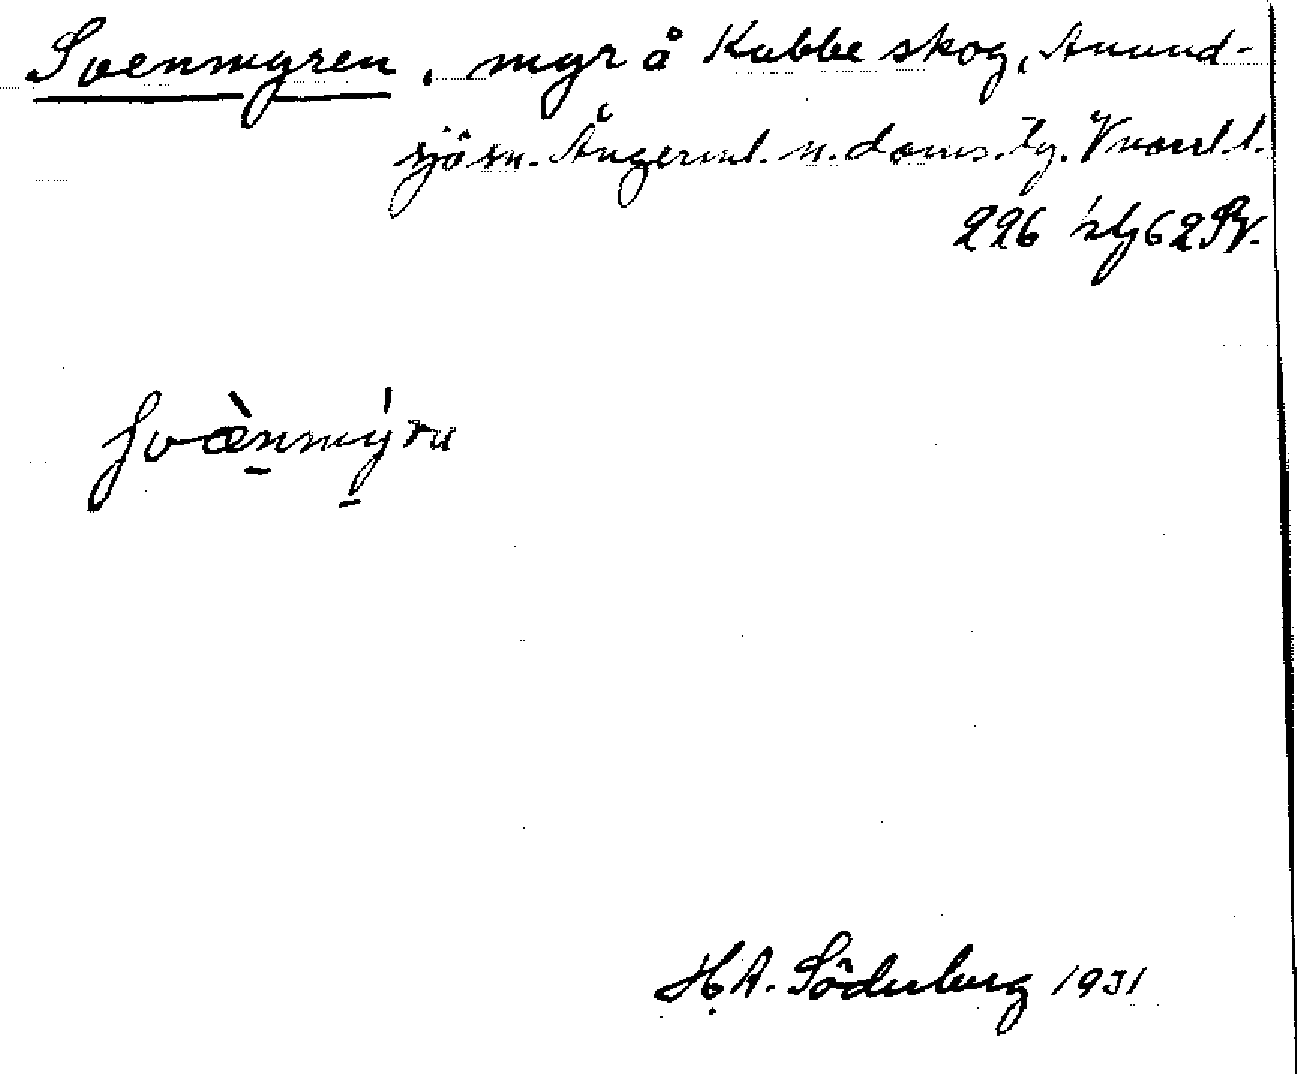 Svenmyren, myr å Kubbe skog, Anund-
sjö sn. Ångerml. n. doms. tg. Vnorrl l.
226 ⅟₂ 62 SV.
Svæ̀nmýra
H. A. Söderberg 1931